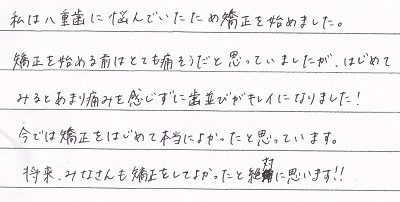 私は八重歯に悩んでいたため矯正を始めました。
矯正を始める前はとても痛そうだと思っていましたが、はじめて
みるとあまり痛みを感じずに歯並びがキレイになりました!
今では矯正をはじめて本当によかったと思っています。
将来、みなさんも矯正をしてよかったと絶対に思います!!